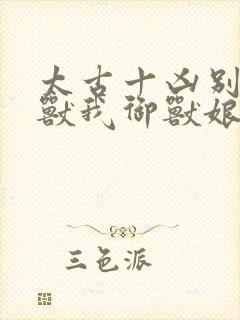 太古十凶别
兽我御兽娘
三色派